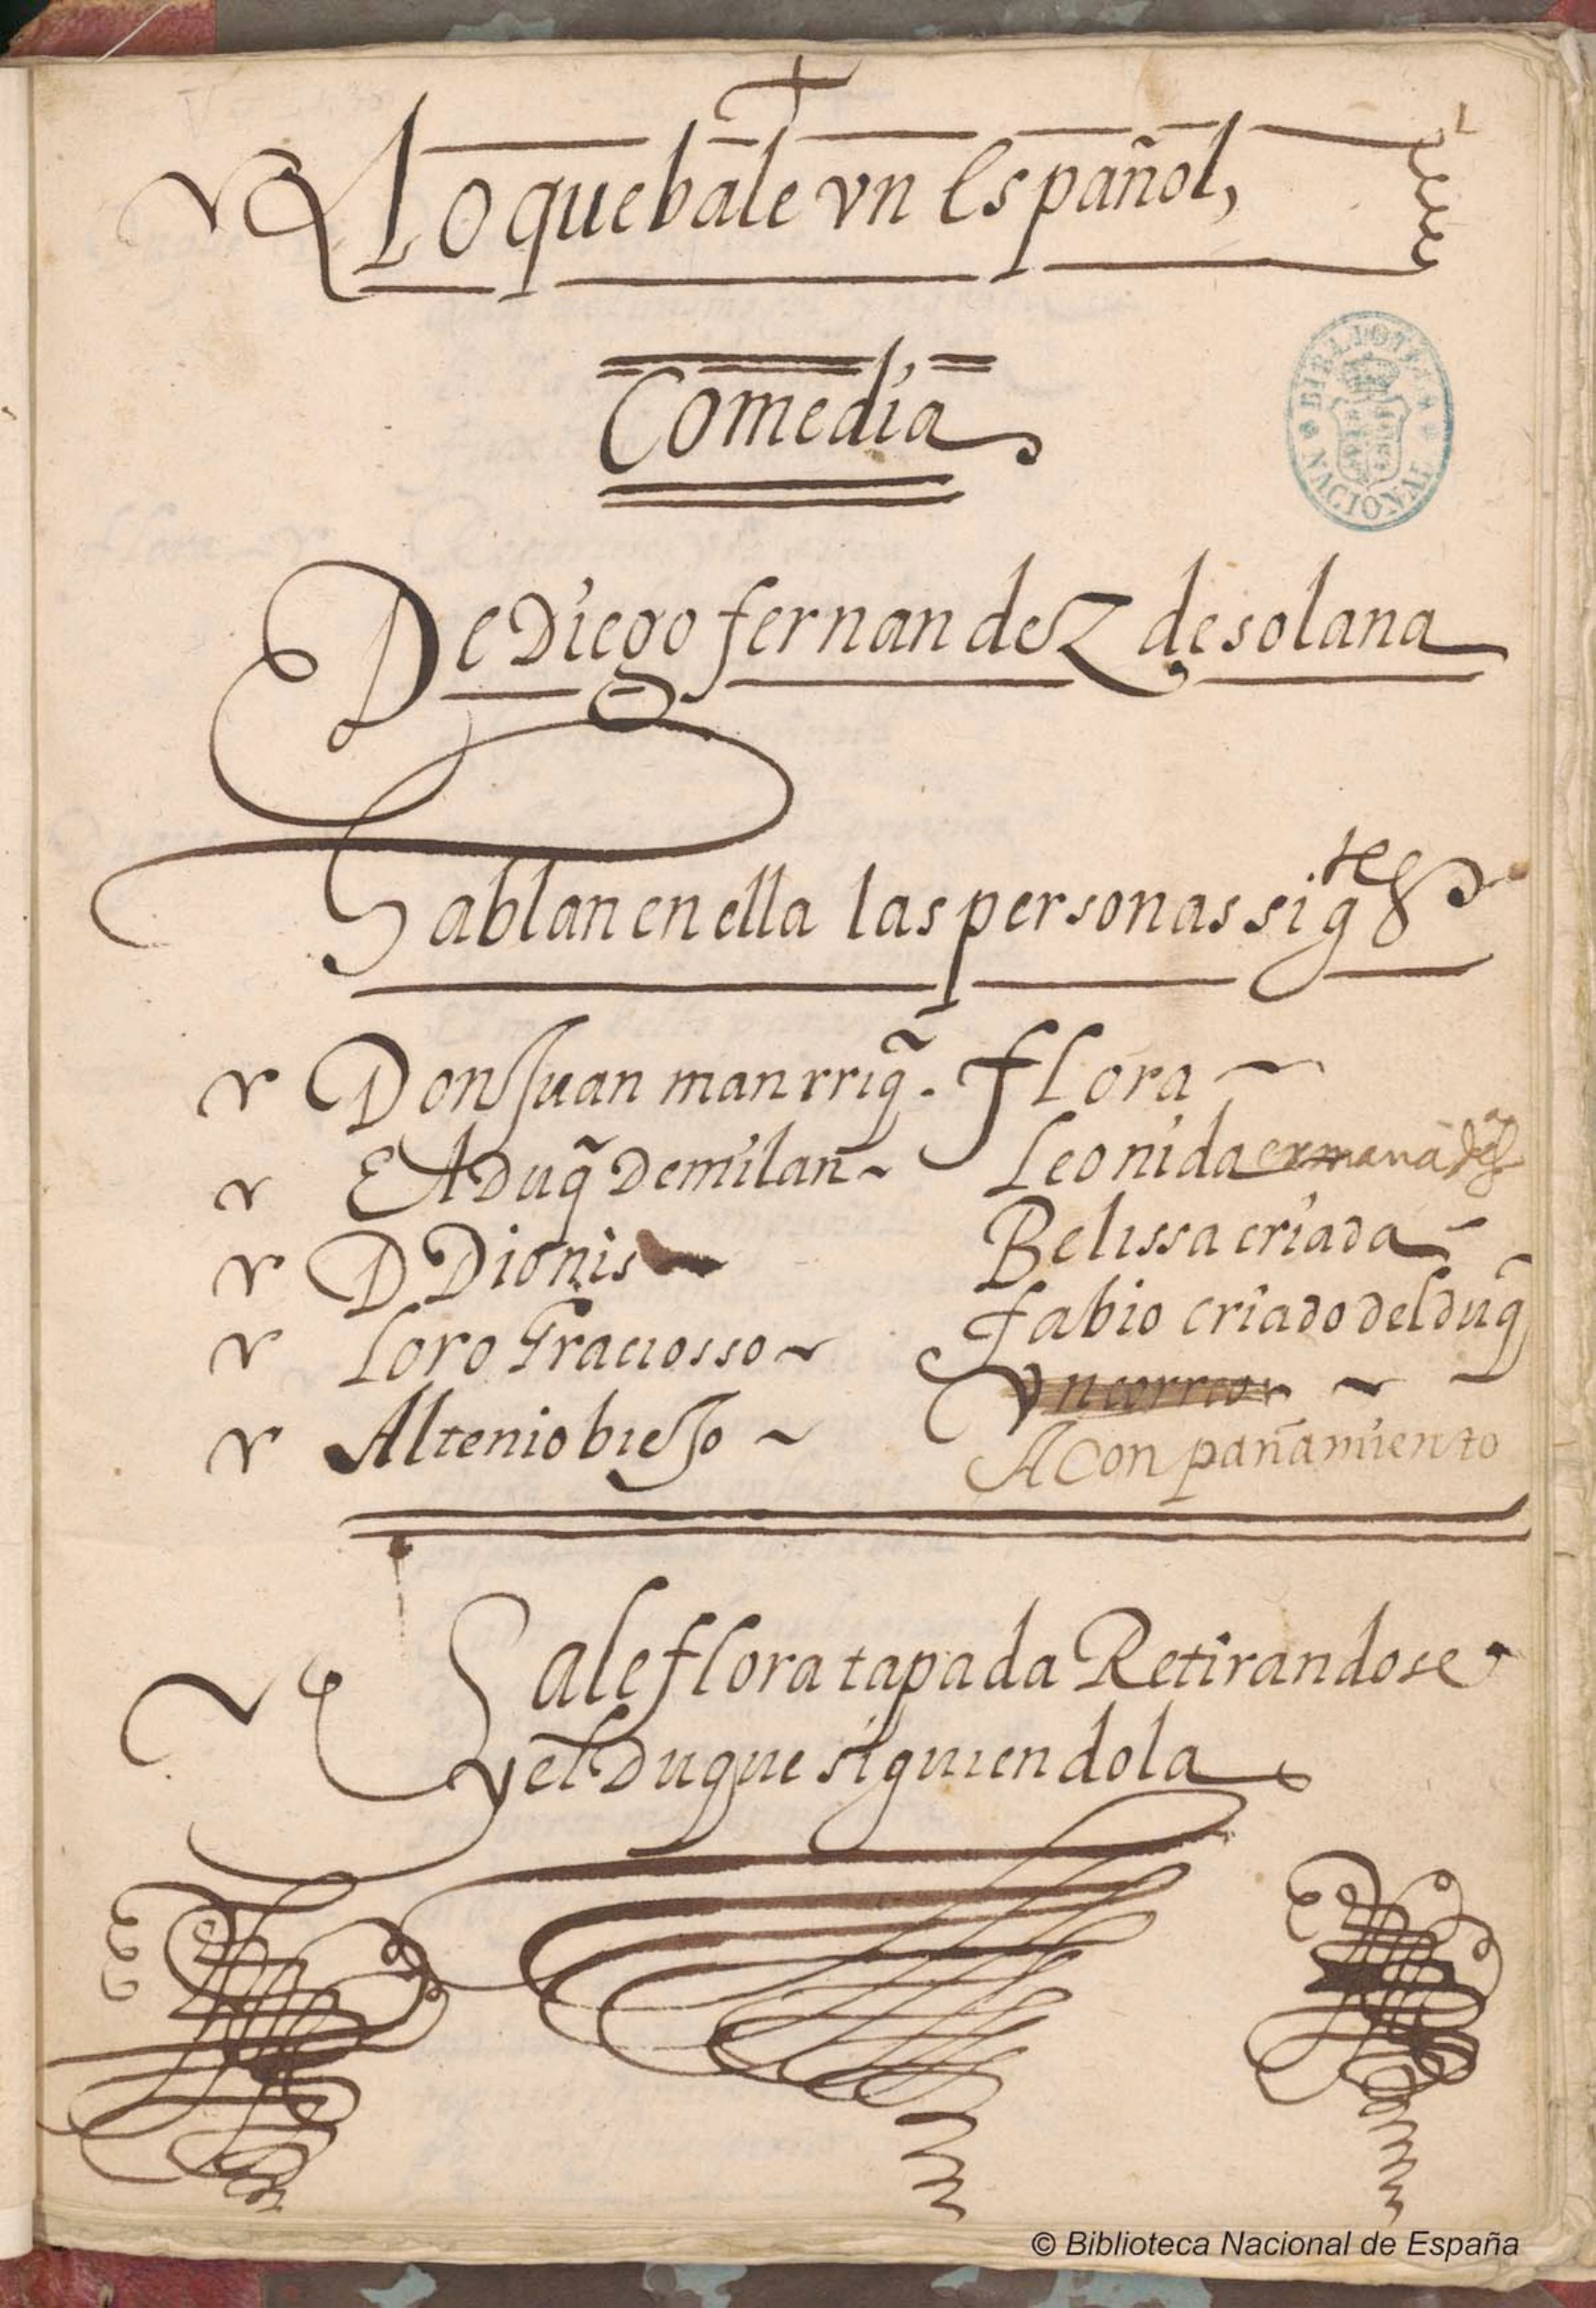 Lo que bale vn Español,
Comedia
BIBLIOTECA NACIONAL
De Diego fernandeZ de solana
Hablan en ella las personas sigtes
Don Juan manrriq̃. flora
El Duq̃ De milan Leonida ermana
D Dionis Belissa criada
Loro Graciosso fabio criado del duq̃
Altenio biejo Vn correo
Aconpañamiento
Sale flora tapada Retirandose
y el Duque siguiendola
© Biblioteca Nacional de España